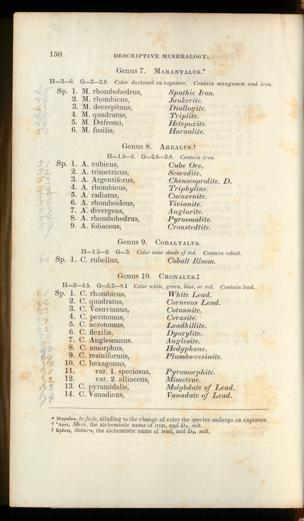 150
DESCRIPTIVE MINERALOGY.
Genus 7. MARANTALUS.*
H=3—6. G=3—3.9. Color darkened on exposure. Contain manganese and iron.
Sp. 1. M. rhombohedrus, Spathic Iron.
2. M. rhombicus, Junkerite.
3. M. decrepitans, Diallogite.
4. M. quadratus, Triplite.
5. M. Dufresni, Hetepozite.
6. M. fusilis, Huraulite.
Genus 8. AREALUS.†
H=1.5—5. G=2.6—3.8. Contain iron.
Sp. 1. A. cubicus, Cube Ore.
2. A. trimetricus, Scorodite.
3. A. Argentiferus, Chenocoprolite. D.
4. A. rhombicus, Triphyline.
5. A. radiatus, Cacoxenite.
6. A. rhomboideus, Vivianite.
7. A. divergens, Anglarite.
8. A. rhombohedrus, Pyrosmalite.
9. A. foliaceus, Cronstedtite.
Genus 9. COBALTALUS.
H=1.5—2. G=3. Color some shade of red. Contain cobalt.
Sp. 1. C. rubellus, Cobalt Bloom.
Genus 10. CRONALUS.‡
H=2—4.5. G=5.3—8.1 Color white, green, blue, or red. Contain lead.
Sp. 1. C. rhombicus, White Lead.
2. C. quadratus, Corneous Lead.
3. C. Vesuvianus, Cotunnite.
4. C. peritomus, Cerasite.
5. C. acrotonus, Leadhillite.
6. C. flexilis, Dyoxylite.
7. C. Angleseanus, Anglesite.
8. C. amorphus, Hedyphane.
9. C. resiniformis, Plumbo-resinite.
10. C. hexagonus,
11. var. 1. speciosus, Pyromorphite.
12. var. 2. alliaceus, Mimetene.
13. C. pyramidalis, Molybdate of Lead.
14. C. Vanadicus, Vanadate of Lead.
* Μαραίνω, to fade, alluding to the change of color the species undergo on exposure.
† Ἄρης, Mars, the alchemistic name of iron, and ἅλς, salt.
‡ Κρόνος, Saturn, the alchemistic name of lead, and ἅλς, salt.